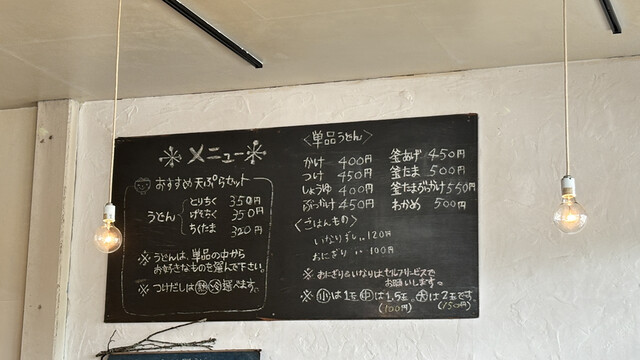 ※メニュー※
おすすめ天ぷらセット
うどん
とりちく 350円
げそちく 350円
ちくたま 320円
※うどんは、単品の中から
お好きなものを選んで下さい。
※つけだしは熱冷選べます。
〈単品うどん〉
かけ 400円
つけ 450円
しょうゆ 400円
ぶっかけ 450円
釜あげ 450円
釜たま 500円
釜たまぶっかけ 550円
わかめ 500円
〈ごはんもの〉
いなりずし‥120円
おにぎり‥100円
※おにぎり&いなりはセルフサービスで
お願いします。
※小は1玉、中は1.5玉、大は2玉です。
(100円) (150円)